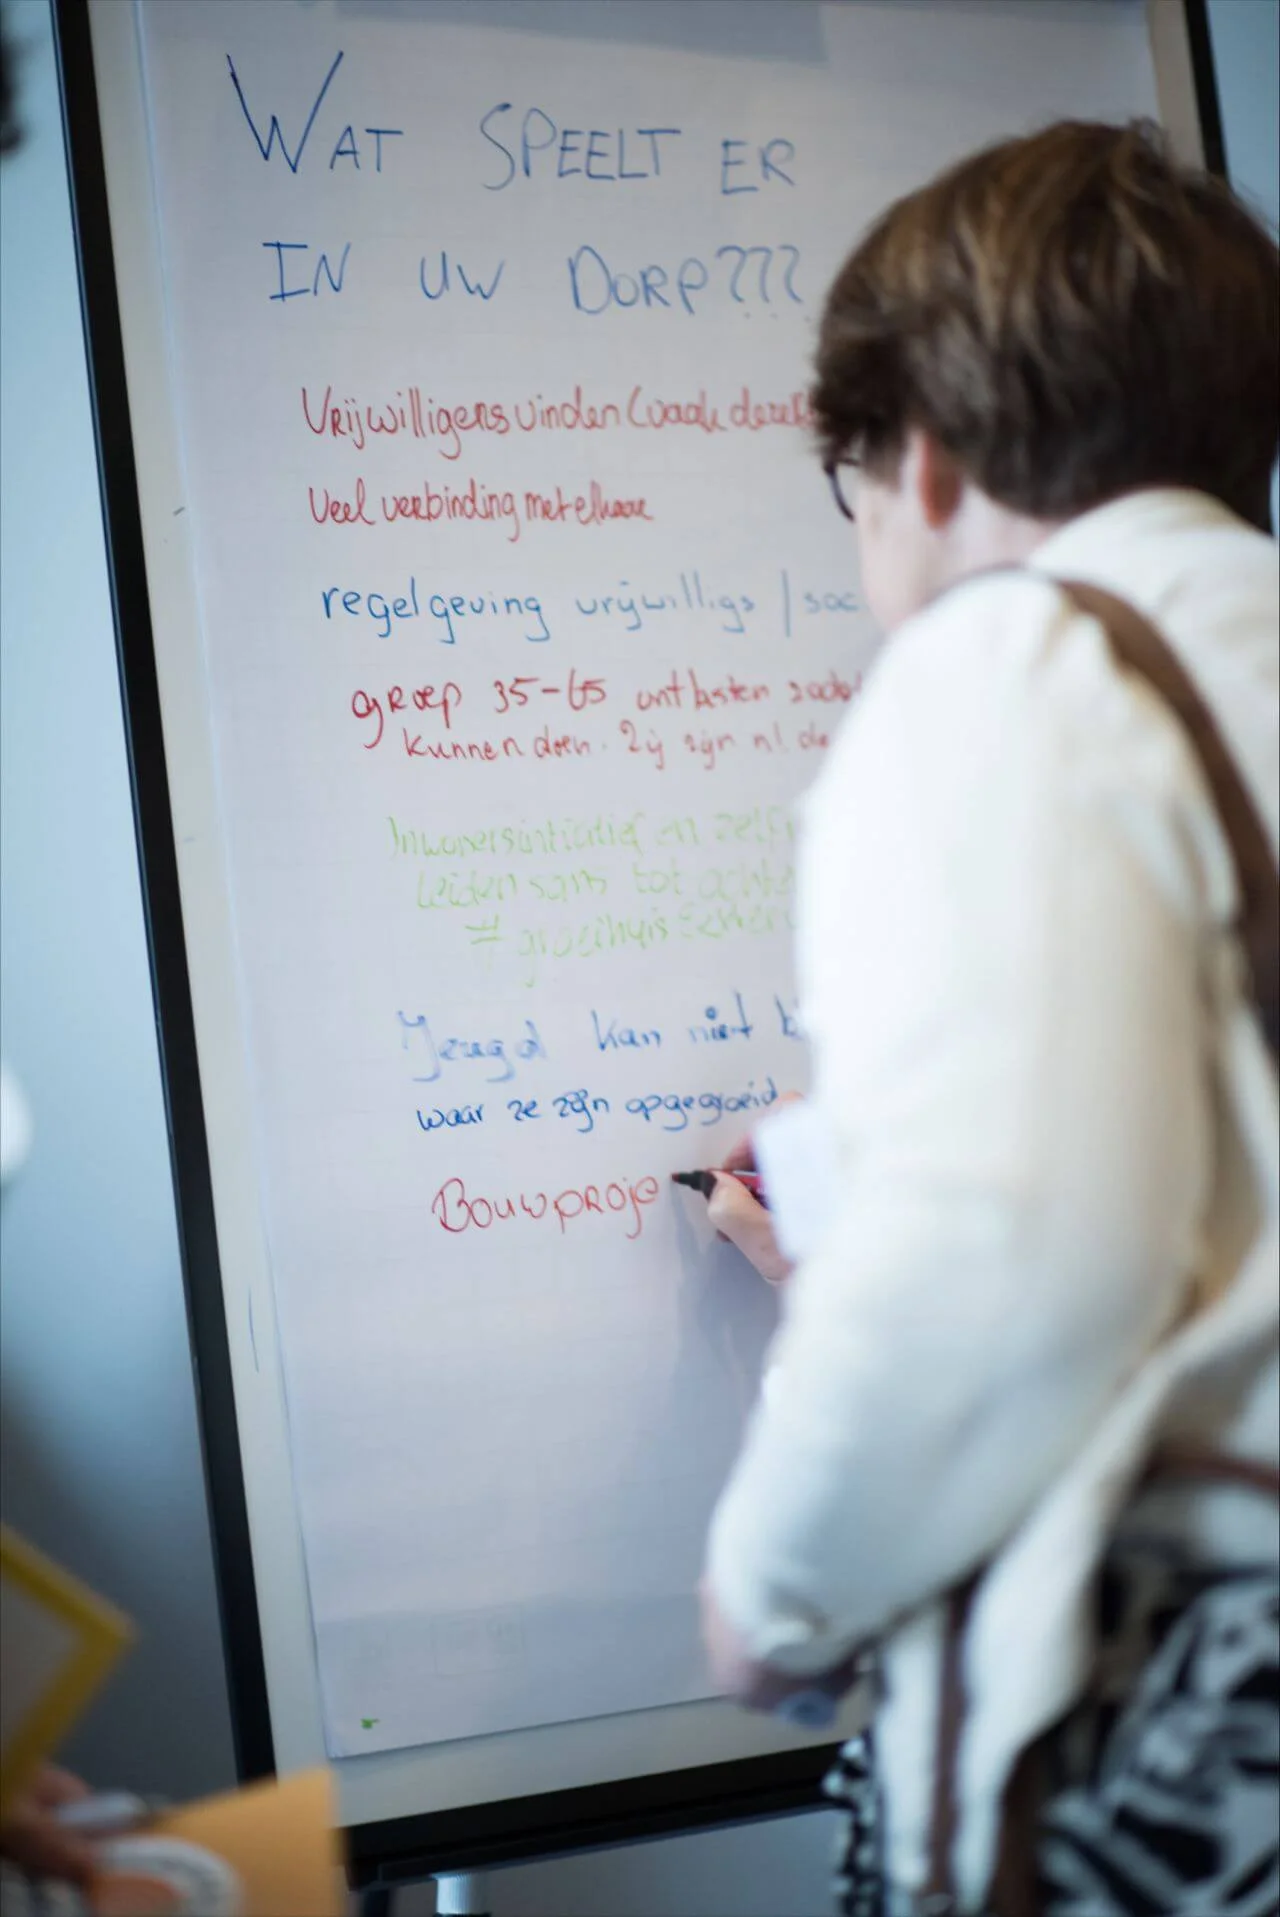 WAT SPEELT ER
IN UW DORP???
Vrijwilligers vinden (vaak dezelf
Veel verbinding met elkaar
regelgeving vrijwilligs / soc
groep 35-65 ontlasten zodat
kunnen doen. Zij zijn nl. de
Inwonersintiatief en zelf
leiden soms tot achte
# groeihuis
Jeugd kan niet b
waar ze zijn opgegroeid
Bouwproje